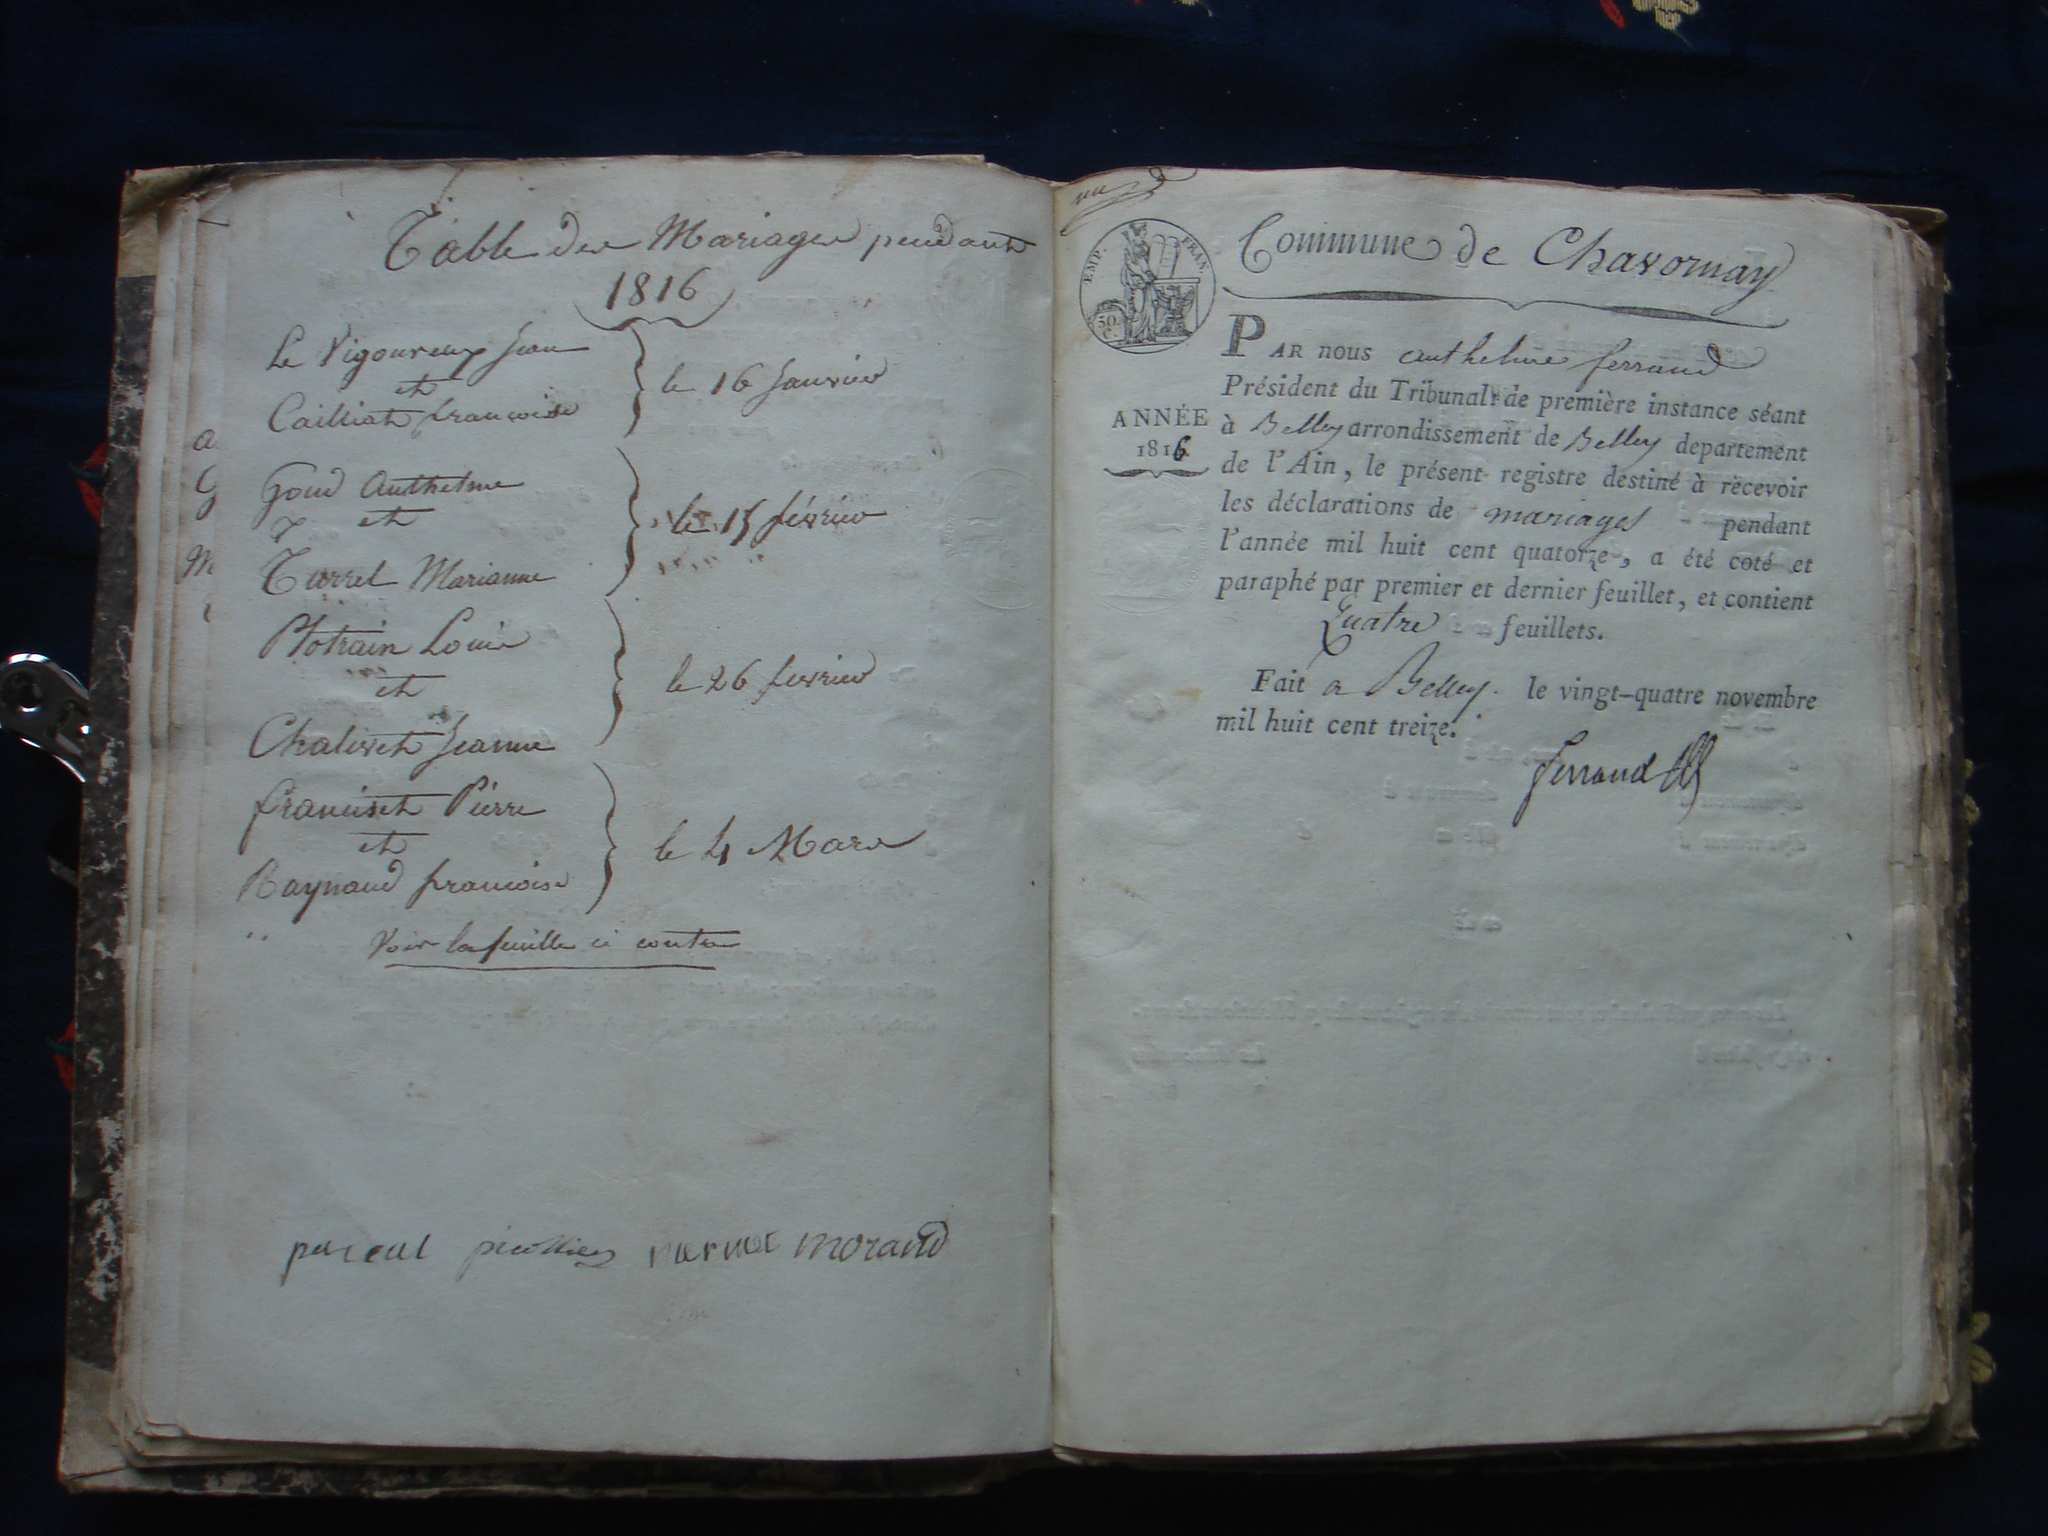 Table des Mariages pendant
1816
Le Vigoureux Jean
et
Cailliat francoise
le 16 Janvier
Goud Anthelme
et
Turrel Marianne
le 15 février
Plotrain Louis
et
Chalivet Jeanne
le 26 fevrier
franciset Pierre
et
Raynaud francoise
le 4 Mars
Voir la feuille ci contre
morand
a
G
M
EMP. FRAN.
50 C.
Commune de Chavornay
ANNÉE
1816
PAR nous anthelme ferrand
Président du Tribunal de première instance séant
à Belley arrondissement de Belley departement
de l'Ain, le présent registre destiné à recevoir
les déclarations de mariages pendant
l'année mil huit cent quatorze, a été coté et
paraphé par premier et dernier feuillet, et contient
Quatre feuillets.
Fait a Belley. le vingt-quatre novembre
mil huit cent treize.
ferrand